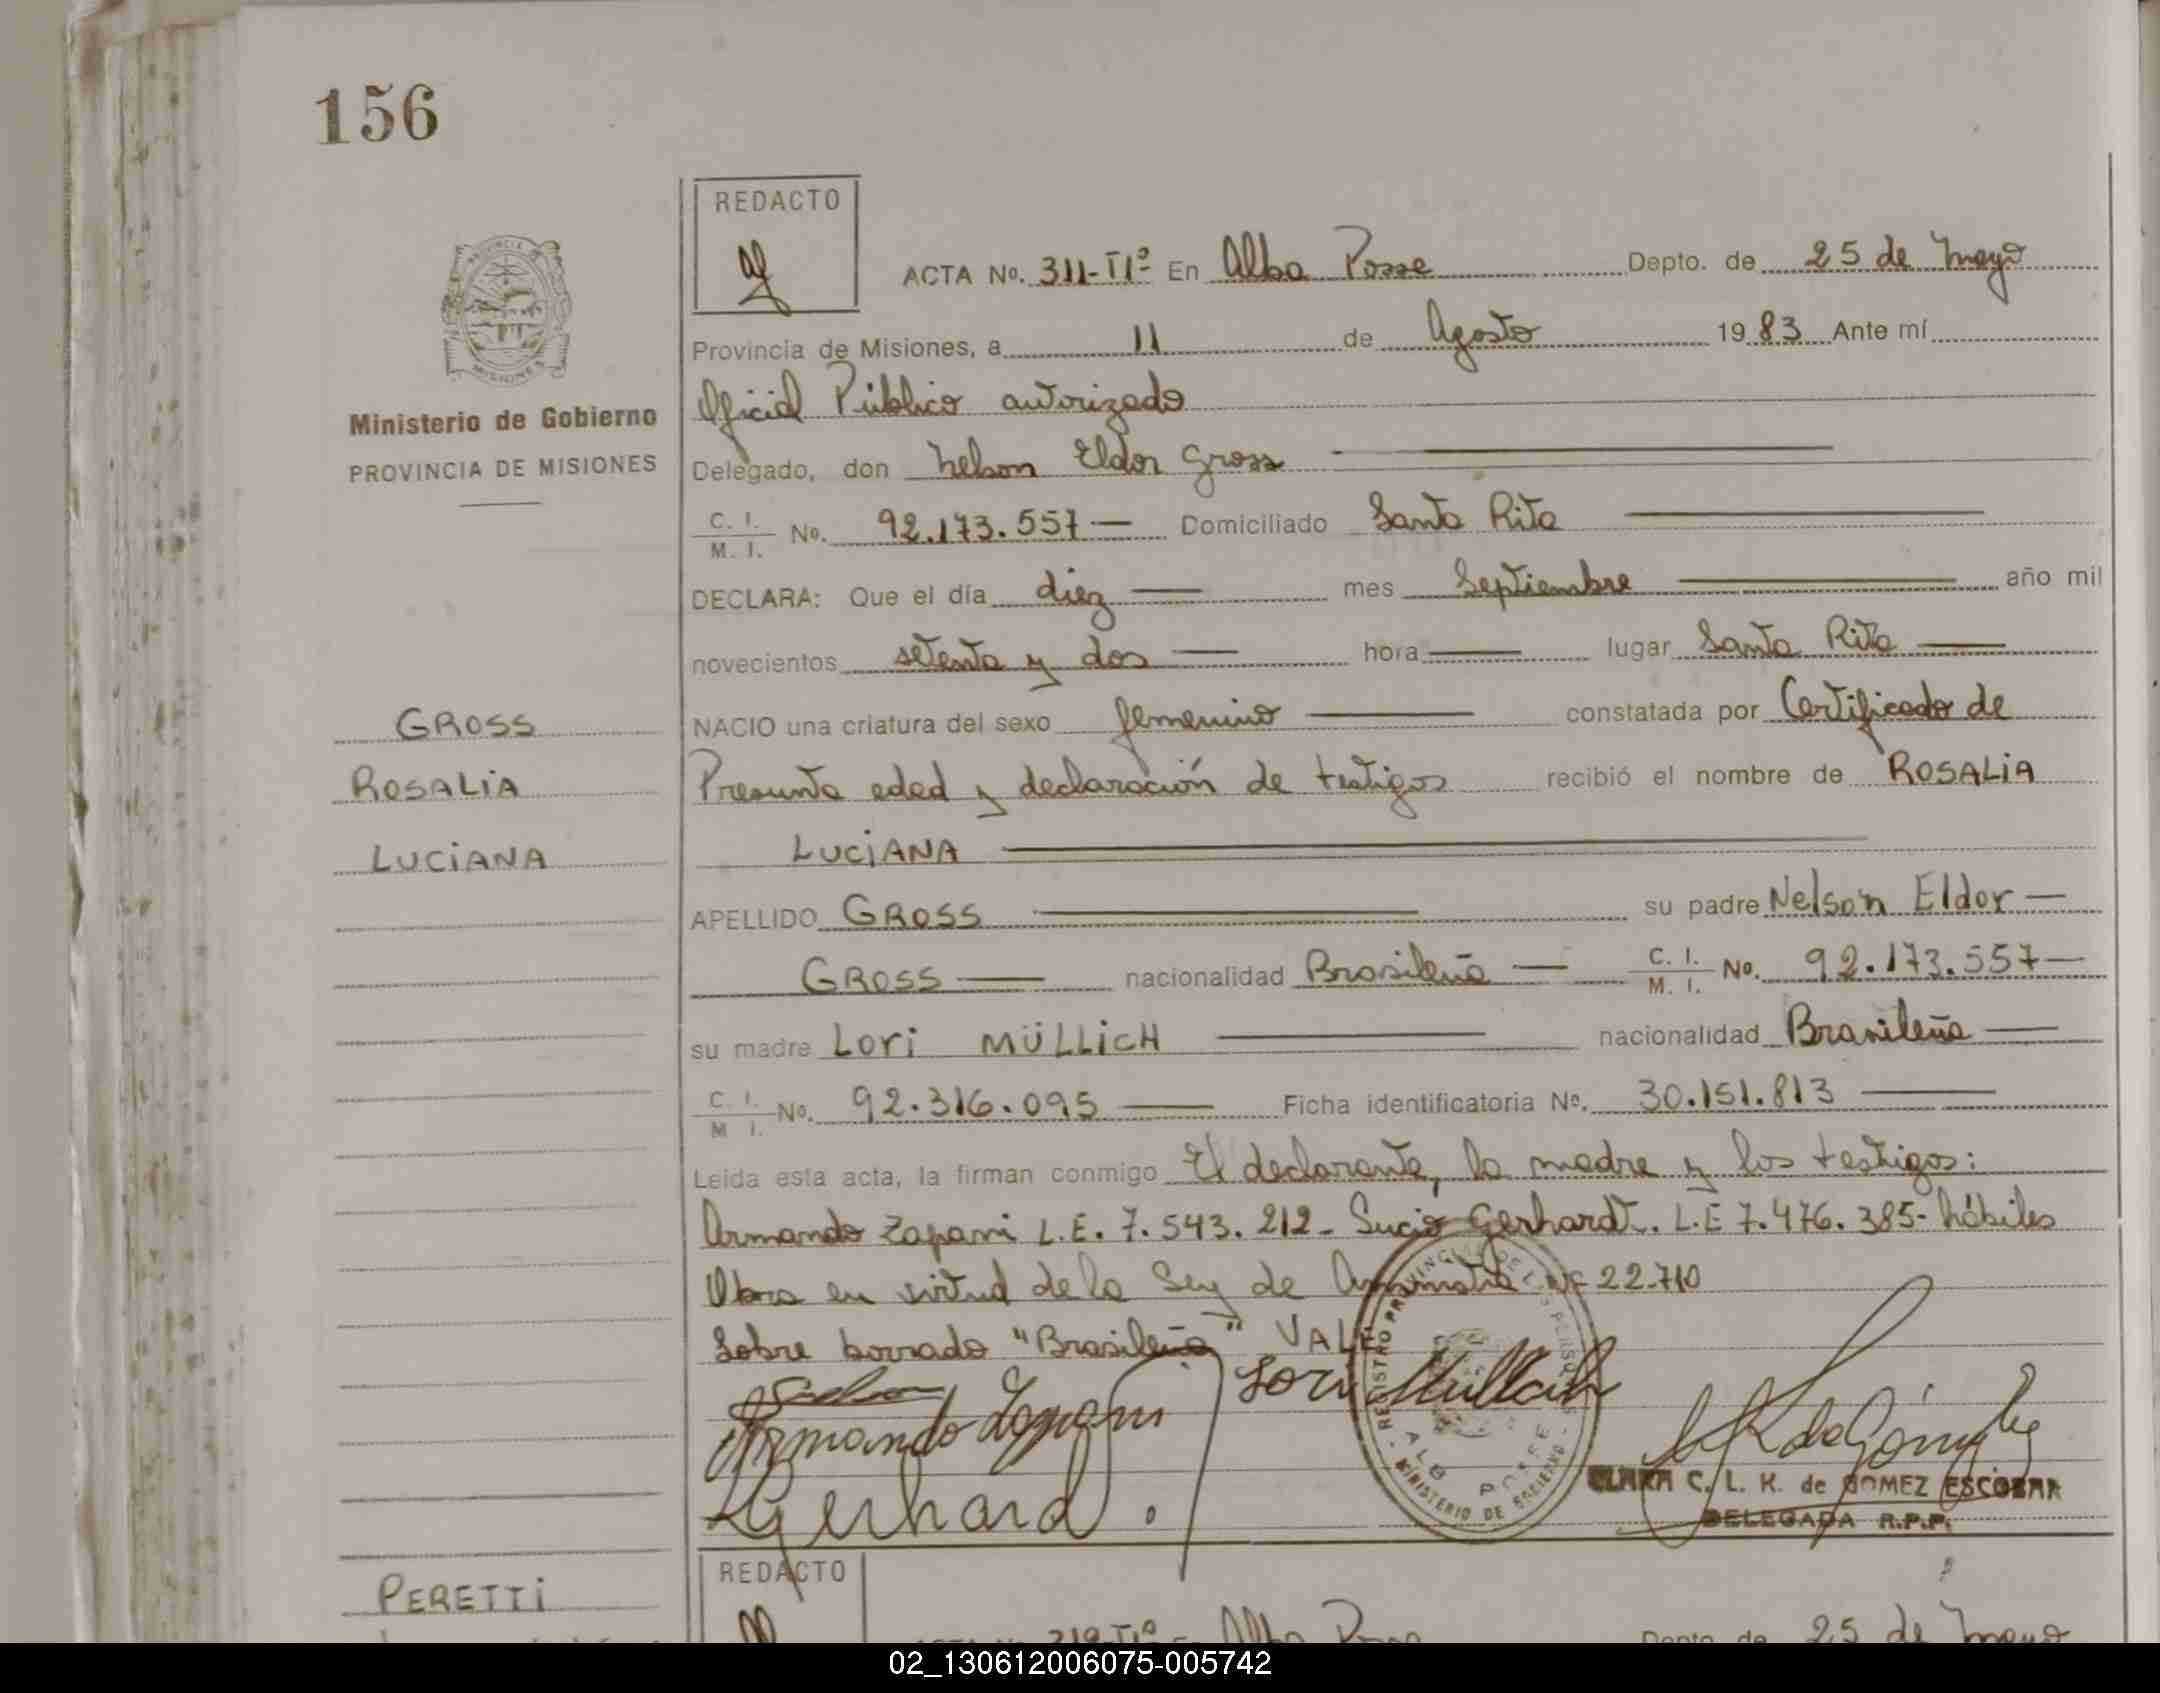 156
REDACTO
ACTA No. 311-TIº En Alba Posse Depto. de 25 de Mayo
Provincia de Misiones, a 11 de Agosto 1983 Ante mí
PROVINCIA DE
MISIONES
Ministerio de Gobierno
PROVINCIA DE MISIONES
Oficial Público autorizado
Delegado, don Nelson Eldor Gross
C. I.
M. I. No. 92.173.557— Domiciliado Santa Rita
DECLARA: Que el día diez mes Septiembre año mil
novecientos setenta y dos hora lugar Santa Rita
GROSS
NACIO una criatura del sexo femenino constatada por Certificado de
ROSALiA
Presunta edad y declaración de testigos recibió el nombre de ROSALiA
LUCiANA
LUCiANA
APELLIDO GROSS su padre Nelson Eldor —
GROSS — nacionalidad Brasileña — C. I.
M. I. No. 92.173.557—
su madre Lori MÜLLiCH nacionalidad Brasileña
C. I.
M I. No. 92.316.095 Ficha identificatoria No. 30.151.813
Leida esta acta, la firman conmigo El declarante, la madre y los testigos:
Armando Zapani L.E. 7.543.212- Sucio Gerhardt. L.E 7.476.385- hábiles
Obra en virtud de la Ley de Amnistía Nº 22.710
Sobre borrado "Brasileña" VALE
Armando Zapani
Lori Müllich
Gerhard
REGISTRO PROVINCIAL DE LAS PERSONAS
ALBA POSSE
MINISTERIO DE GOBIERNO
CLARA C. L. K. de GOMEZ ESCOBAR
DELEGADA R.P.P.
REDACTO
PERETTi
Alba Posse Depto. de 25 de Mayo
02_130612006075-005742